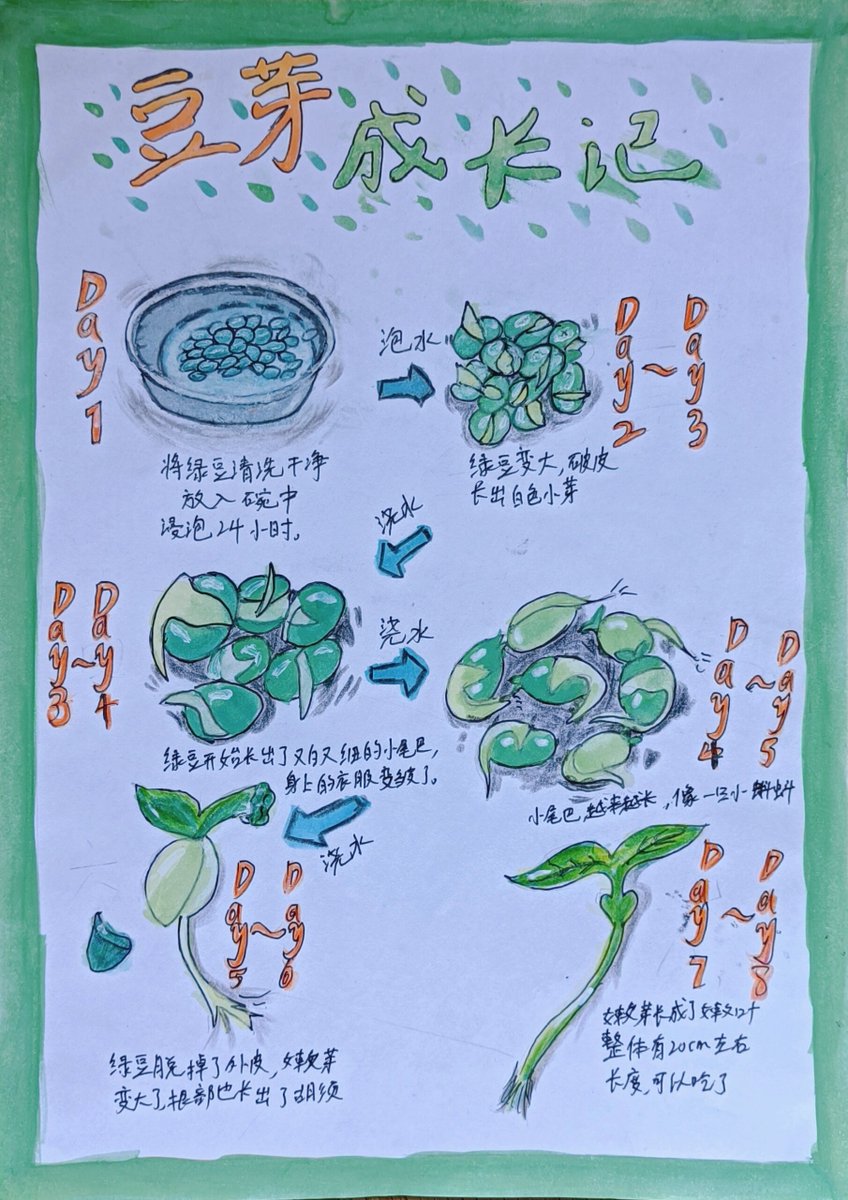 豆芽成长记
Day1
泡水
Day2~Day3
将绿豆清洗干净
放入碗中
浸泡24小时。
绿豆变大,破皮
长出白色小芽
浇水
Day3~Day4
浇水
Day4~Day5
绿豆开始长出了又白又细的小尾巴,
身上的衣服变皱了。
小尾巴越来越长,像一只小蝌蚪
浇水
Day5~Day6
Day7~Day8
绿豆脱掉了外皮,嫩芽
变大了,根部也长出了胡须
嫩芽长成了嫩叶
整体有20cm左右
长度,可以吃了